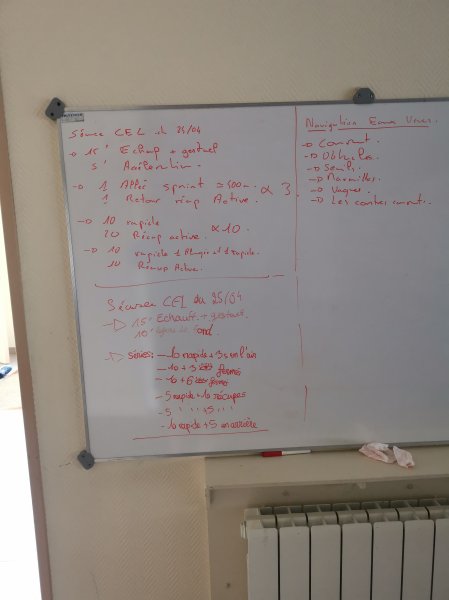 Séance CEL du 25/04
-> 15' Echauf + gestuel
5' Accélération.
-> 1 Allé sprint ≃ 500m.
1 Retour récup Active. x 3.
-> 10 rapide
20 Récup active. x 10.
-> 10 rapide 1 1 rapide.
10 Récup Active.
Séance CEL du 25/04
-> 15' Echauff. + gestuel
10' de fond.
-> Séries: - 10 rapide + 3s en l'air
- 10 + 3 fermés
- 10 + 6 fermé
- 5 rapide + 10 récupes
- 5 " " + 5 " "
- 10 rapide + 5 en arrière
Navigation Eaux Vives.
-> Courant.
-> Obstacles.
-> Seuils.
-> Marmites.
-> Vagues.
-> Les contres courants.